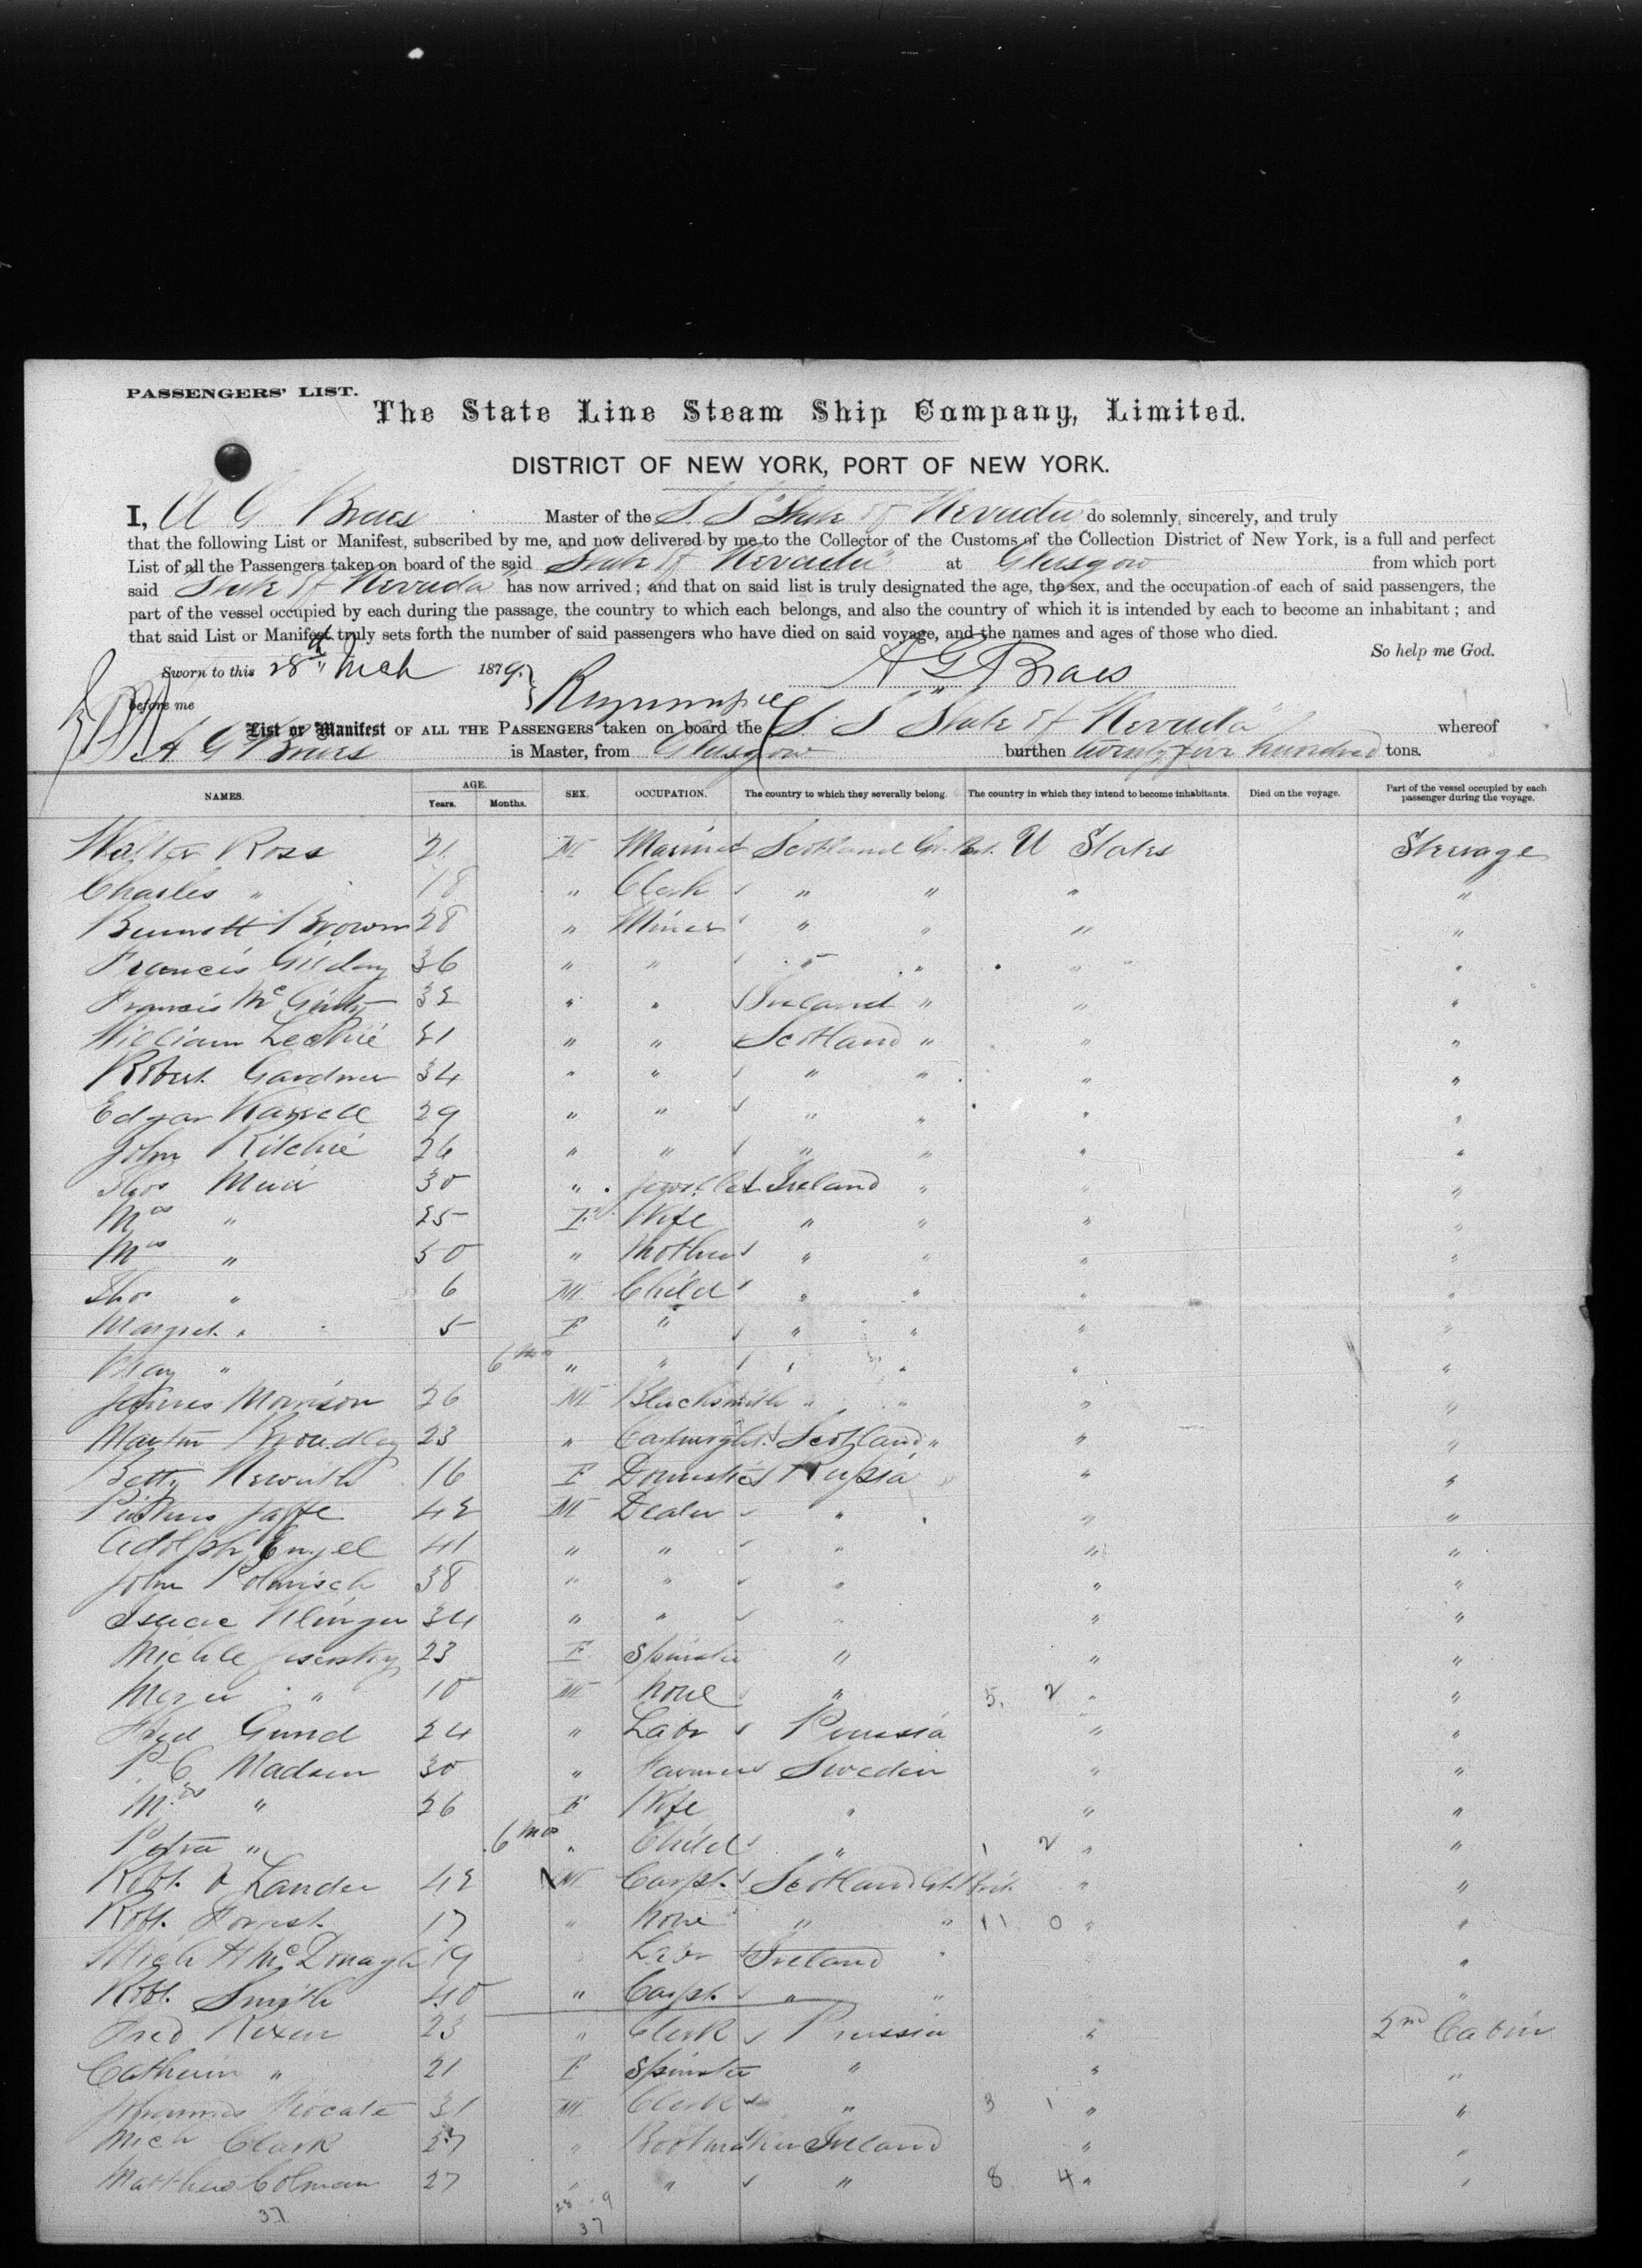 PASSENGERS' LIST.
The State Line Steam Ship Company, Limited.
DISTRICT OF NEW YORK, PORT OF NEW YORK.
I, A G Braes Master of the S. S "State of Nevada" do solemnly, sincerely, and truly
that the following List or Manifest, subscribed by me, and now delivered by me to the Collector of the Customs of the Collection District of New York, is a full and perfect
List of all the Passengers taken on board of the said "State of Nevada" at Glasgow from which port
said "State of Nevada" has now arrived; and that on said list is truly designated the age, the sex, and the occupation of each of said passengers, the
part of the vessel occupied by each during the passage, the country to which each belongs, and also the country of which it is intended by each to become an inhabitant; and
that said List or Manifest truly sets forth the number of said passengers who have died on said voyage, and the names and ages of those who died.
So help me God.
Sworn to this 28th Mch 1879. A G Braes
before me
List or Manifest OF ALL THE PASSENGERS taken on board the S. S "State of Nevada" whereof
A G Braes is Master, from Glasgow burthen twenty five hundred tons.
NAMES. AGE. Years. Months. SEX. OCCUPATION. The country to which they severally belong. The country in which they intend to become inhabitants. Died on the voyage. Part of the vessel occupied by each passenger during the voyage.
Walter Ross 21 M Scotland Gt. Brit. U States Steerage
Charles " 18 " Clerk " " " "
Bennett Brown 28 " Miner " " " "
Francis Gilday 36 " " " " " "
Francis McGinty 32 " " Ireland " " "
William Leckie 21 " " Scotland " " "
Robert Gardner 34 " " " " " "
Edgar 29 " " " " " "
John Ritchie 26 " " " " " "
Thos Muir 30 " Jeweller Ireland " " "
Mrs " 25 F Wife " " " "
Mrs " 50 " Mother " " " "
Thos " 6 M Child " " " "
Margret " 5 F " " " " "
May " 6 mos " " " " " "
James Morrison 26 M Blacksmith " " " "
Martin 23 " Scotland " " "
Betty 16 F Domestic Russia " "
Jaffe 42 M Dealer " " "
Adolph Engel 41 " " " " "
John 38 " " " " "
Isaac Klinger 34 " " " " "
23 F Spinster " " "
" 10 M None " 5. 2 " "
Fred Gund 24 " Labr Prussia " "
P C Madsen 30 " Farmer Sweden " "
Mrs " 26 F Wife " " "
Petra " 6 mos " Child " 1 2 " "
Robt. Lander 42 M Carpt. Scotland Gt. Brit. " "
Robt. Forrest 17 " None " " 11 0 " "
Mich H McDonagh 19 Labr Ireland " "
Robt. Smith 40 " Carpt. " " "
Fred Rixen 23 " Clerk Prussia " 2nd Cabin
Catherin " 21 F Spinster " " "
Johannes 31 M Clerk " 3 1 " "
Mich Clark 27 " Bootmaker Ireland " "
Matthew Colman 27 " " " 8 4 " "
37 28 9
37